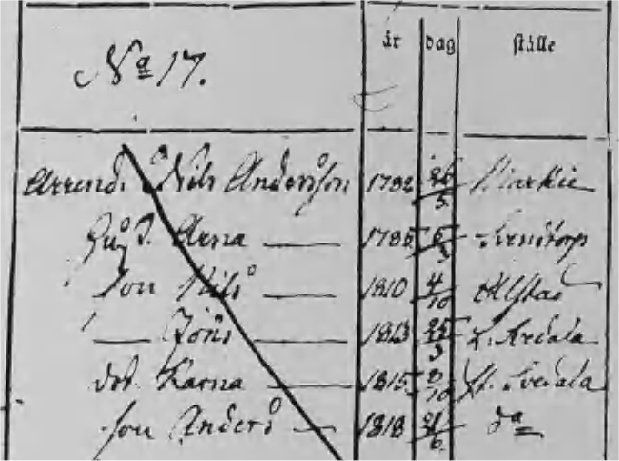 år dag ställe
No 17.
Arrend. Nils Andersson 1782 26/3
Hust. Karna 1785
Son Nils 1810 4/10 Alstad
— Jöns 1813 25/3 L. Svedala
dot. Karna 1815 8/10 St. Svedala
son Anders 1818 21/6 do